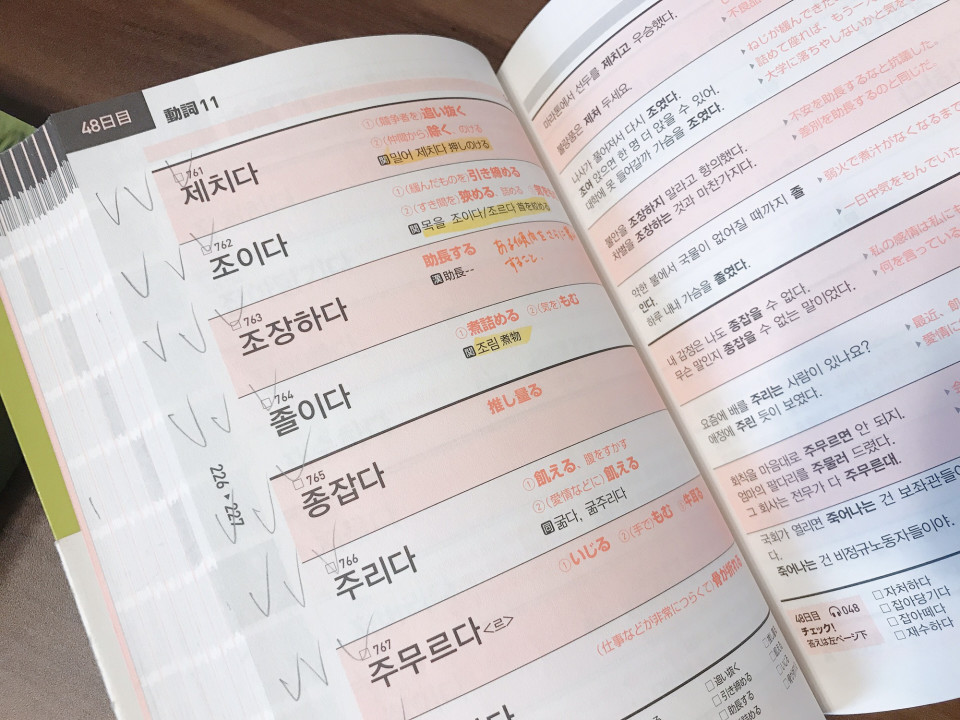 48日目
動詞 11
761
제치다
①(競争者を)追い抜く
②(仲間から)除く、のける
関 밀어 제치다 押しのける
762
조이다
①(緩んだものを)引き締める
②(すき間を)狭める、詰める
関 목을 조이다/조르다 首を絞める
763
조장하다
助長する
漢 助長--
764
졸이다
①煮詰める ②(気を)もむ
関 조림 煮物
765
종잡다
推し量る
766
주리다
①飢える、腹をすかす
②(愛情などに)飢える
同 굶다, 굶주리다
767
주무르다<르>
①いじる ②(手で)もむ
(仕事などが非常につらくて)骨が折れる
226 ▸ 227
□追い抜く
□引き締める
□助長する
마라톤에서 선두를 제치고 우승했다.
불량품은 제쳐 두세요.
나사가 풀어져서 다시 조였다.
조여 앉으면 한 명 더 앉을 수 있어.
대학에 못 들어갈까 가슴을 조였다.
불안을 조장하지 말라고 항의했다.
차별을 조장하는 것과 마찬가지다.
약한 불에서 국물이 없어질 때까지 졸
인다.
하루 내내 가슴을 졸였다.
내 감정은 나도 종잡을 수 없다.
무슨 말인지 종잡을 수 없는 말이었다.
요즘에 배를 주리는 사람이 있나요?
애정에 주린 듯이 보였다.
회칙을 마음대로 주무르면 안 되지.
엄마의 팔다리를 주물러 드렸다.
그 회사는 전무가 다 주무른대.
국회가 열리면 죽어나는 건 보좌관들이
다.
죽어나는 건 비정규노동자들이야.
▸ねじが緩んできた
▸詰めて座れば、もう一
▸大学に落ちやしないかと気を
▸不安を助長するなと抗議した。
▸差別を助長するのと同じだ。
▸弱火で煮汁がなくなるまで
▸一日中気をもんでいた
▸私の感情は私にも
▸何を言っている
▸最近、飢
▸愛情に
48日目 048
チェック!
答えは左ページ下
□자처하다
□잡아당기다
□잡아떼다
□재수하다